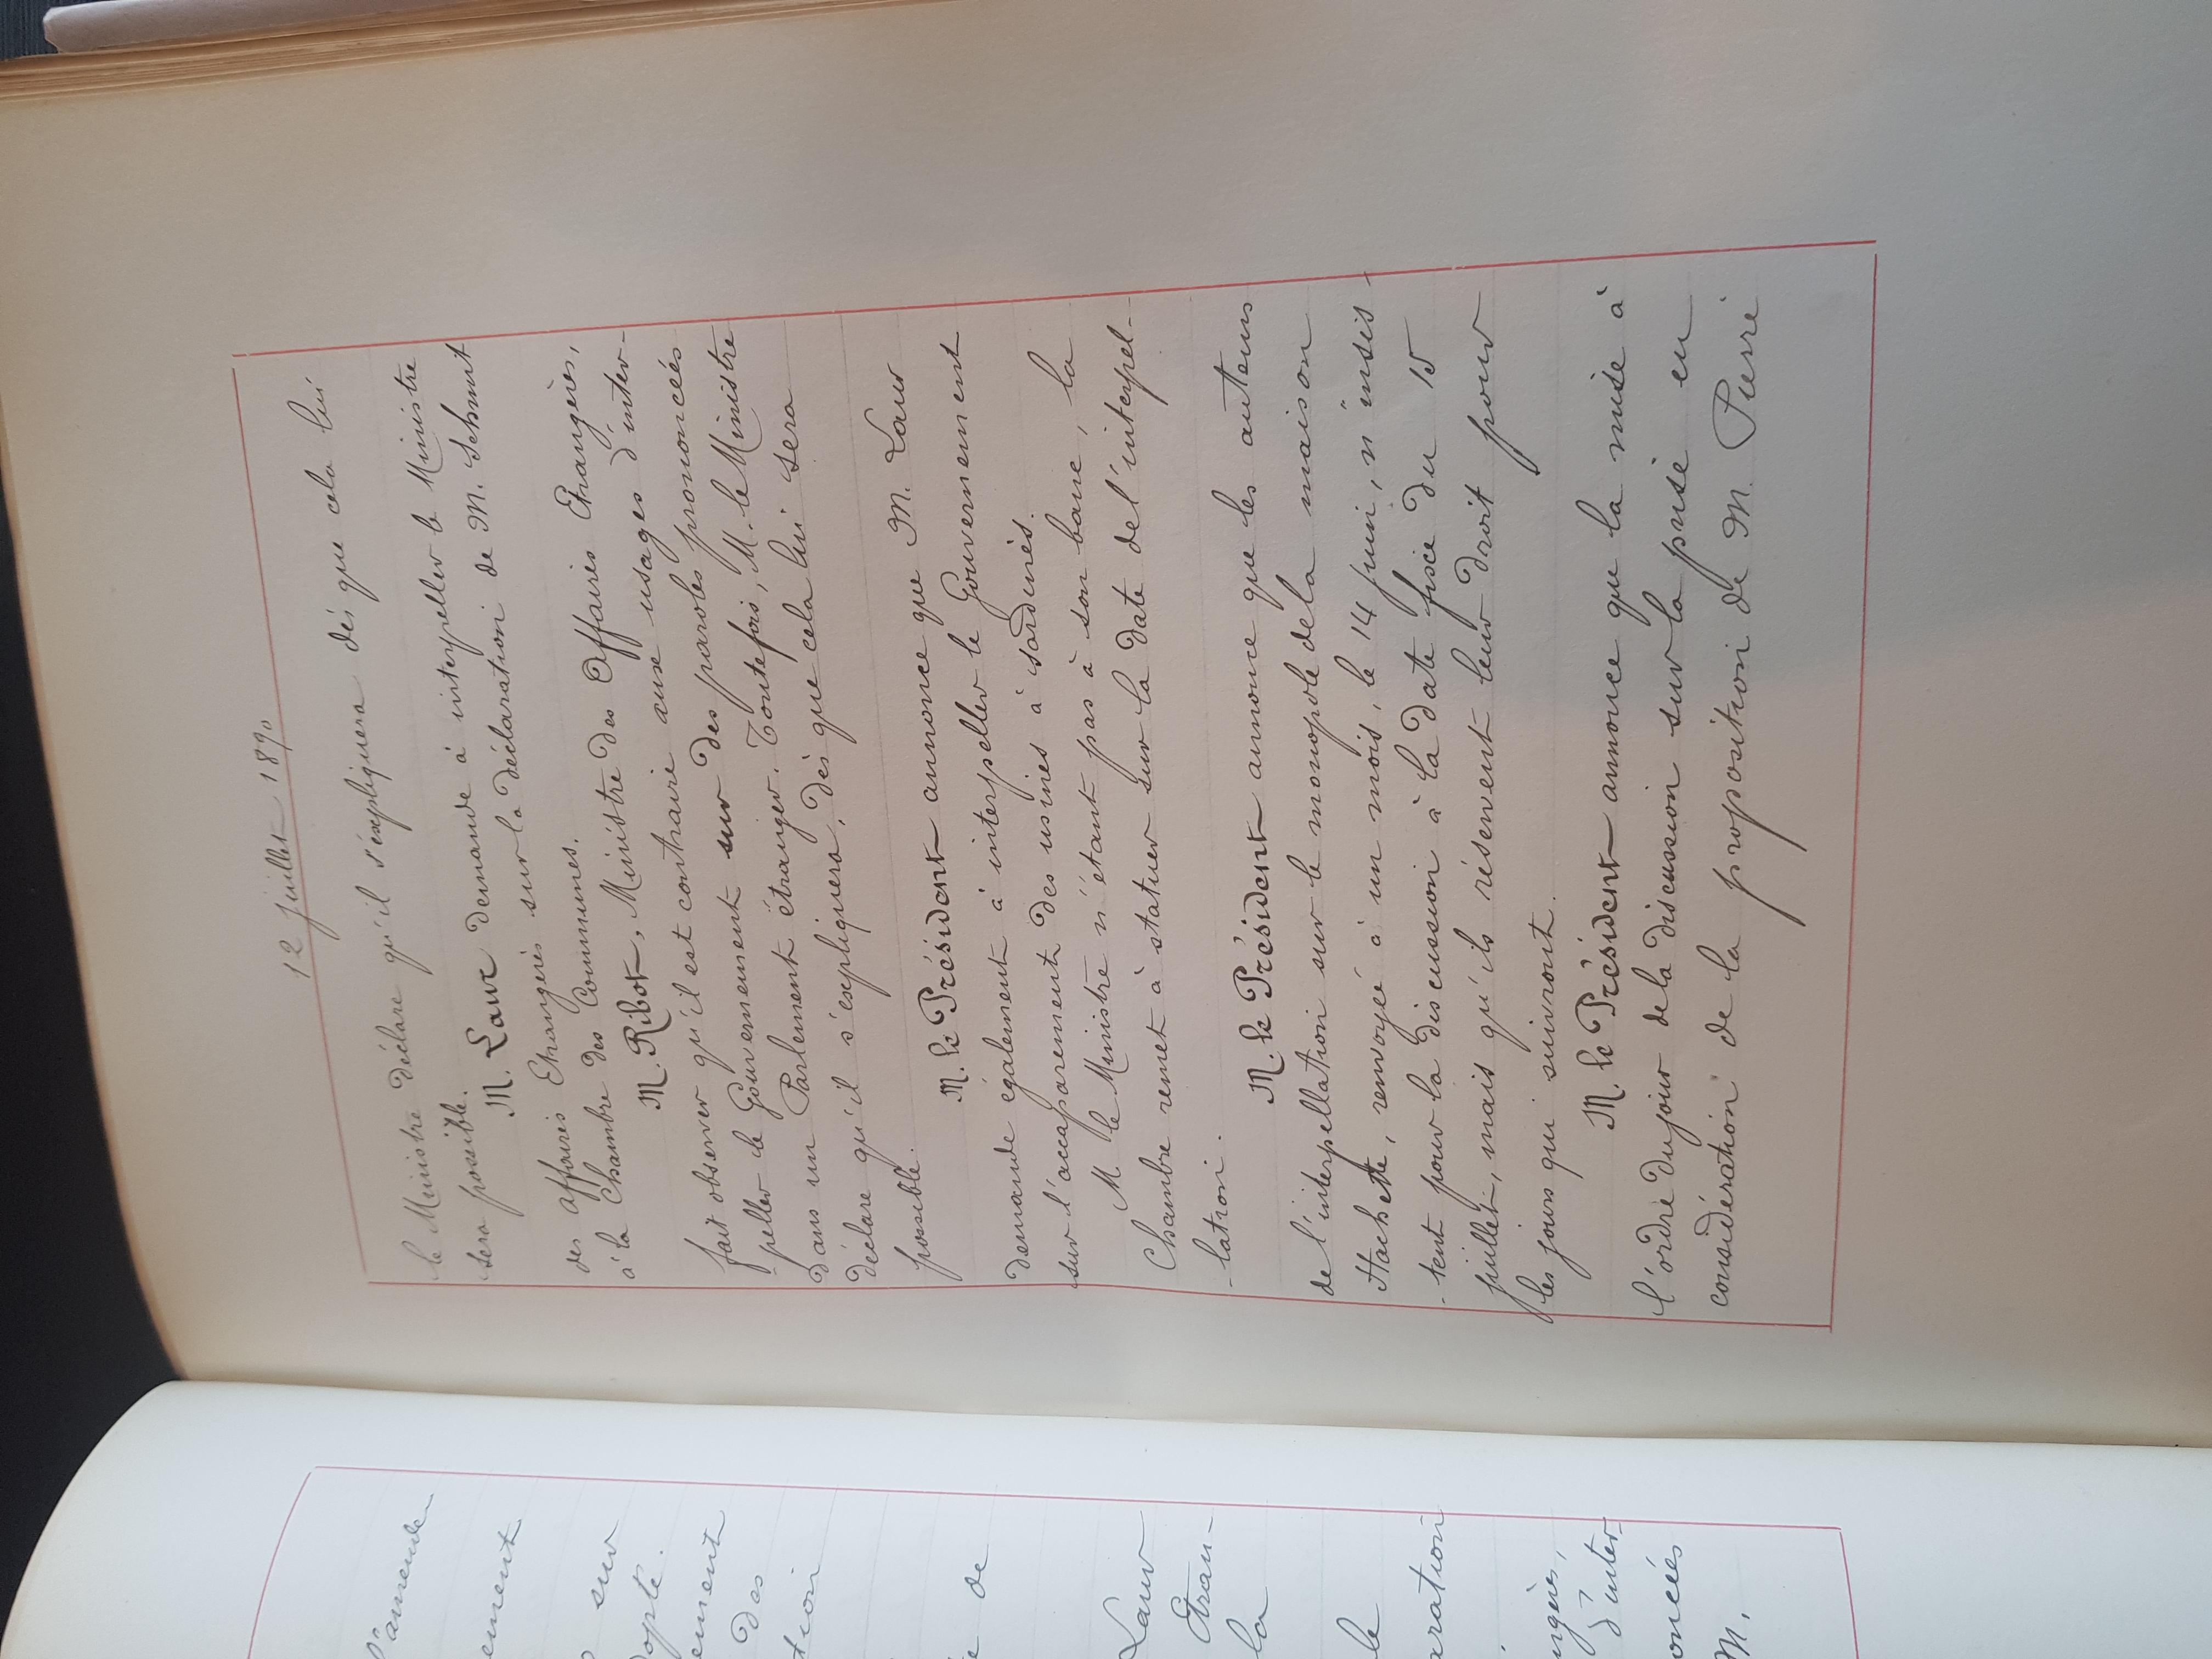 l'amende-
ement
sur
opté.
ement
des
tion
de
Laur
Etran-
la
le
aration
ngères,
d'inter-
oncés
M.
12 juillet 1890
le Ministre déclare qu'il s'expliquera dès que cela lui
sera possible.
M. Laur demande à interpeller le Ministre
des affaires Etrangères sur la déclaration de M. Schmit
à la Chambre des Communes.
M. Ribot, Ministre des Affaires Etrangères,
fait observer qu'il est contraire aux usages d'inter-
peller le Gouvernement sur des paroles prononcées
dans un Parlement étranger. Toutefois, M. le Ministre
déclare qu'il s'expliquera, dès que cela lui sera
possible.
M. le Président annonce que M. Laur
demande également à interpeller le Gouvernement
sur l'accaparement des usines à soudines.
M. le Ministre n'étant pas à son banc, la
Chambre remet à statuer sur la date de l'interpel-
-lation.
M. le Président annonce que les auteurs
de l'interpellation sur le monopole de la maison
Hachette, renvoyé à un mois, le 14 juin, n'insis-
-tent pour la discussion à la date fixée du 15
juillet, mais qu'ils réservent leur droit pour
les jours qui suivront.
M. le Président annonce que la mise à
l'ordre du jour de la discussion sur la prise en
considération de la proposition de M. Pierre